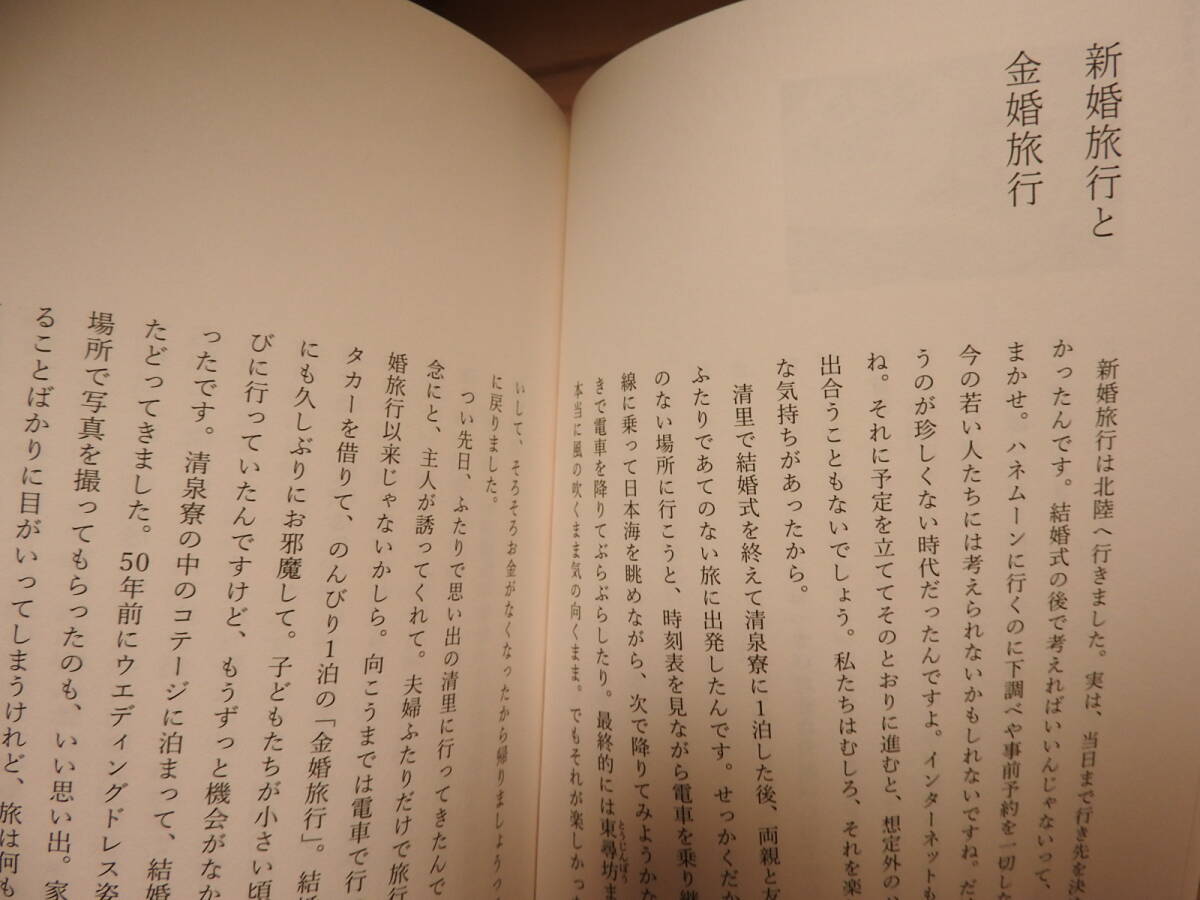 新婚旅行と
金婚旅行
新婚旅行は北陸へ行きました。実は、当日まで行き先を決
かったんです。結婚式の後で考えればいいんじゃないって、
まかせ。ハネムーンに行くのに下調べや事前予約を一切しな
今の若い人たちには考えられないかもしれないですね。だ
うのが珍しくない時代だったんですよ。インターネットも
ね。それに予定を立ててそのとおりに進むと、想定外の
出合うこともないでしょう。私たちはむしろ、それを楽
な気持ちがあったから。
清里で結婚式を終えて清泉寮に1泊した後、両親と友
ふたりであてのない旅に出発したんです。せっかくだか
のない場所に行こうと、時刻表を見ながら電車を乗り継
線に乗って日本海を眺めながら、次で降りてみようかな
きで電車を降りてぶらぶらしたり。最終的には東尋坊ま
とうじんぼう
本当に風の吹くまま気の向くまま。でもそれが楽しかった
いして、そろそろお金がなくなったから帰りましょうっ
に戻りました。
つい先日、ふたりで思い出の清里に行ってきたんで
念にと、主人が誘ってくれて。夫婦ふたりだけで旅行
婚旅行以来じゃないかしら。向こうまでは電車で行
タカーを借りて、のんびり1泊の「金婚旅行」。結
にも久しぶりにお邪魔して。子どもたちが小さい頃
びに行っていたんですけど、もうずっと機会がなか
ったです。清泉寮の中のコテージに泊まって、結婚
たどってきました。50年前にウエディングドレス姿
場所で写真を撮ってもらったのも、いい思い出。家
ることばかりに目がいってしまうけれど、旅は何も